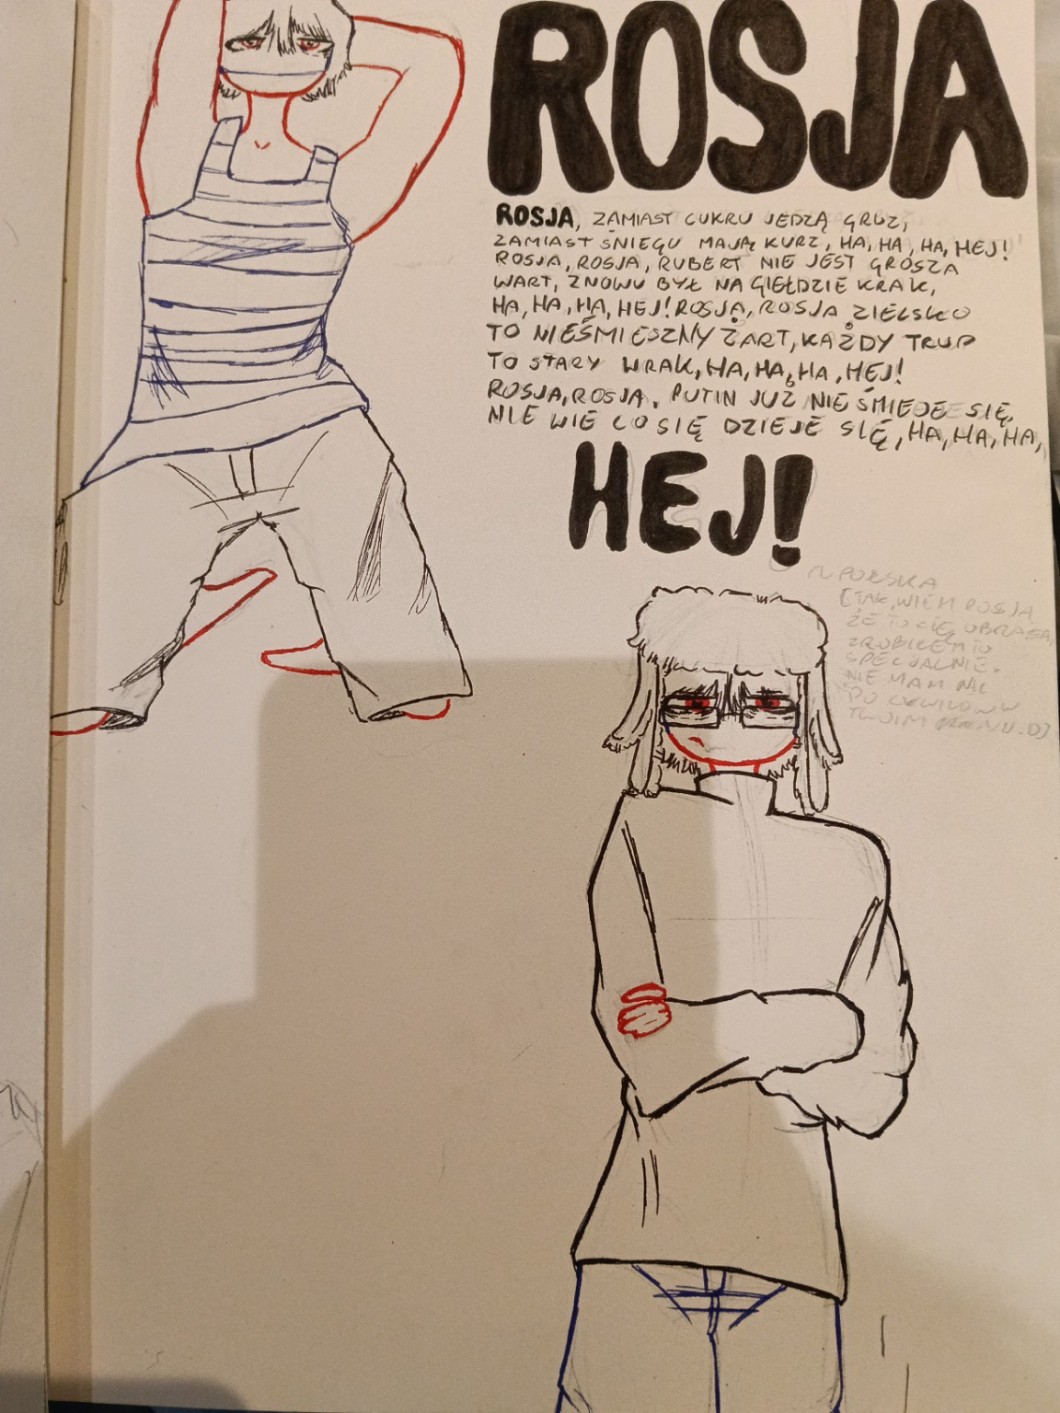 ROSJA
ROSJA, ZAMIAST CUKRU JEDZĄ GRUZ,
ZAMIAST ŚNIEGU MAJĄ KURZ, HA, HA, HA, HEJ!
ROSJA, ROSJA, RUBERT NIE JEST GROSZA
WART, ZNOWU BYŁ NA GIEŁDZIE KRAK,
HA, HA, HA, HEJ! ROSJA, ROSJA ZIELSKO
TO NIEŚMIESZNY ŻART, KAŻDY TRUP
TO STARY WRAK, HA, HA, HA, HEJ!
ROSJA, ROSJA. PUTIN JUŻ NIE ŚMIEJE SIĘ,
NIE WIE CO SIĘ DZIEJE SIĘ, HA, HA, HA,
HEJ!
~ POLSKA
[TAK, WIEM ROSJA
ŻE TO CIĘ OBRAŻA
ZROBIŁEM TO
SPECJALNIE.
NIE MAM NIC
DO CYWILÓW W
TWOIM